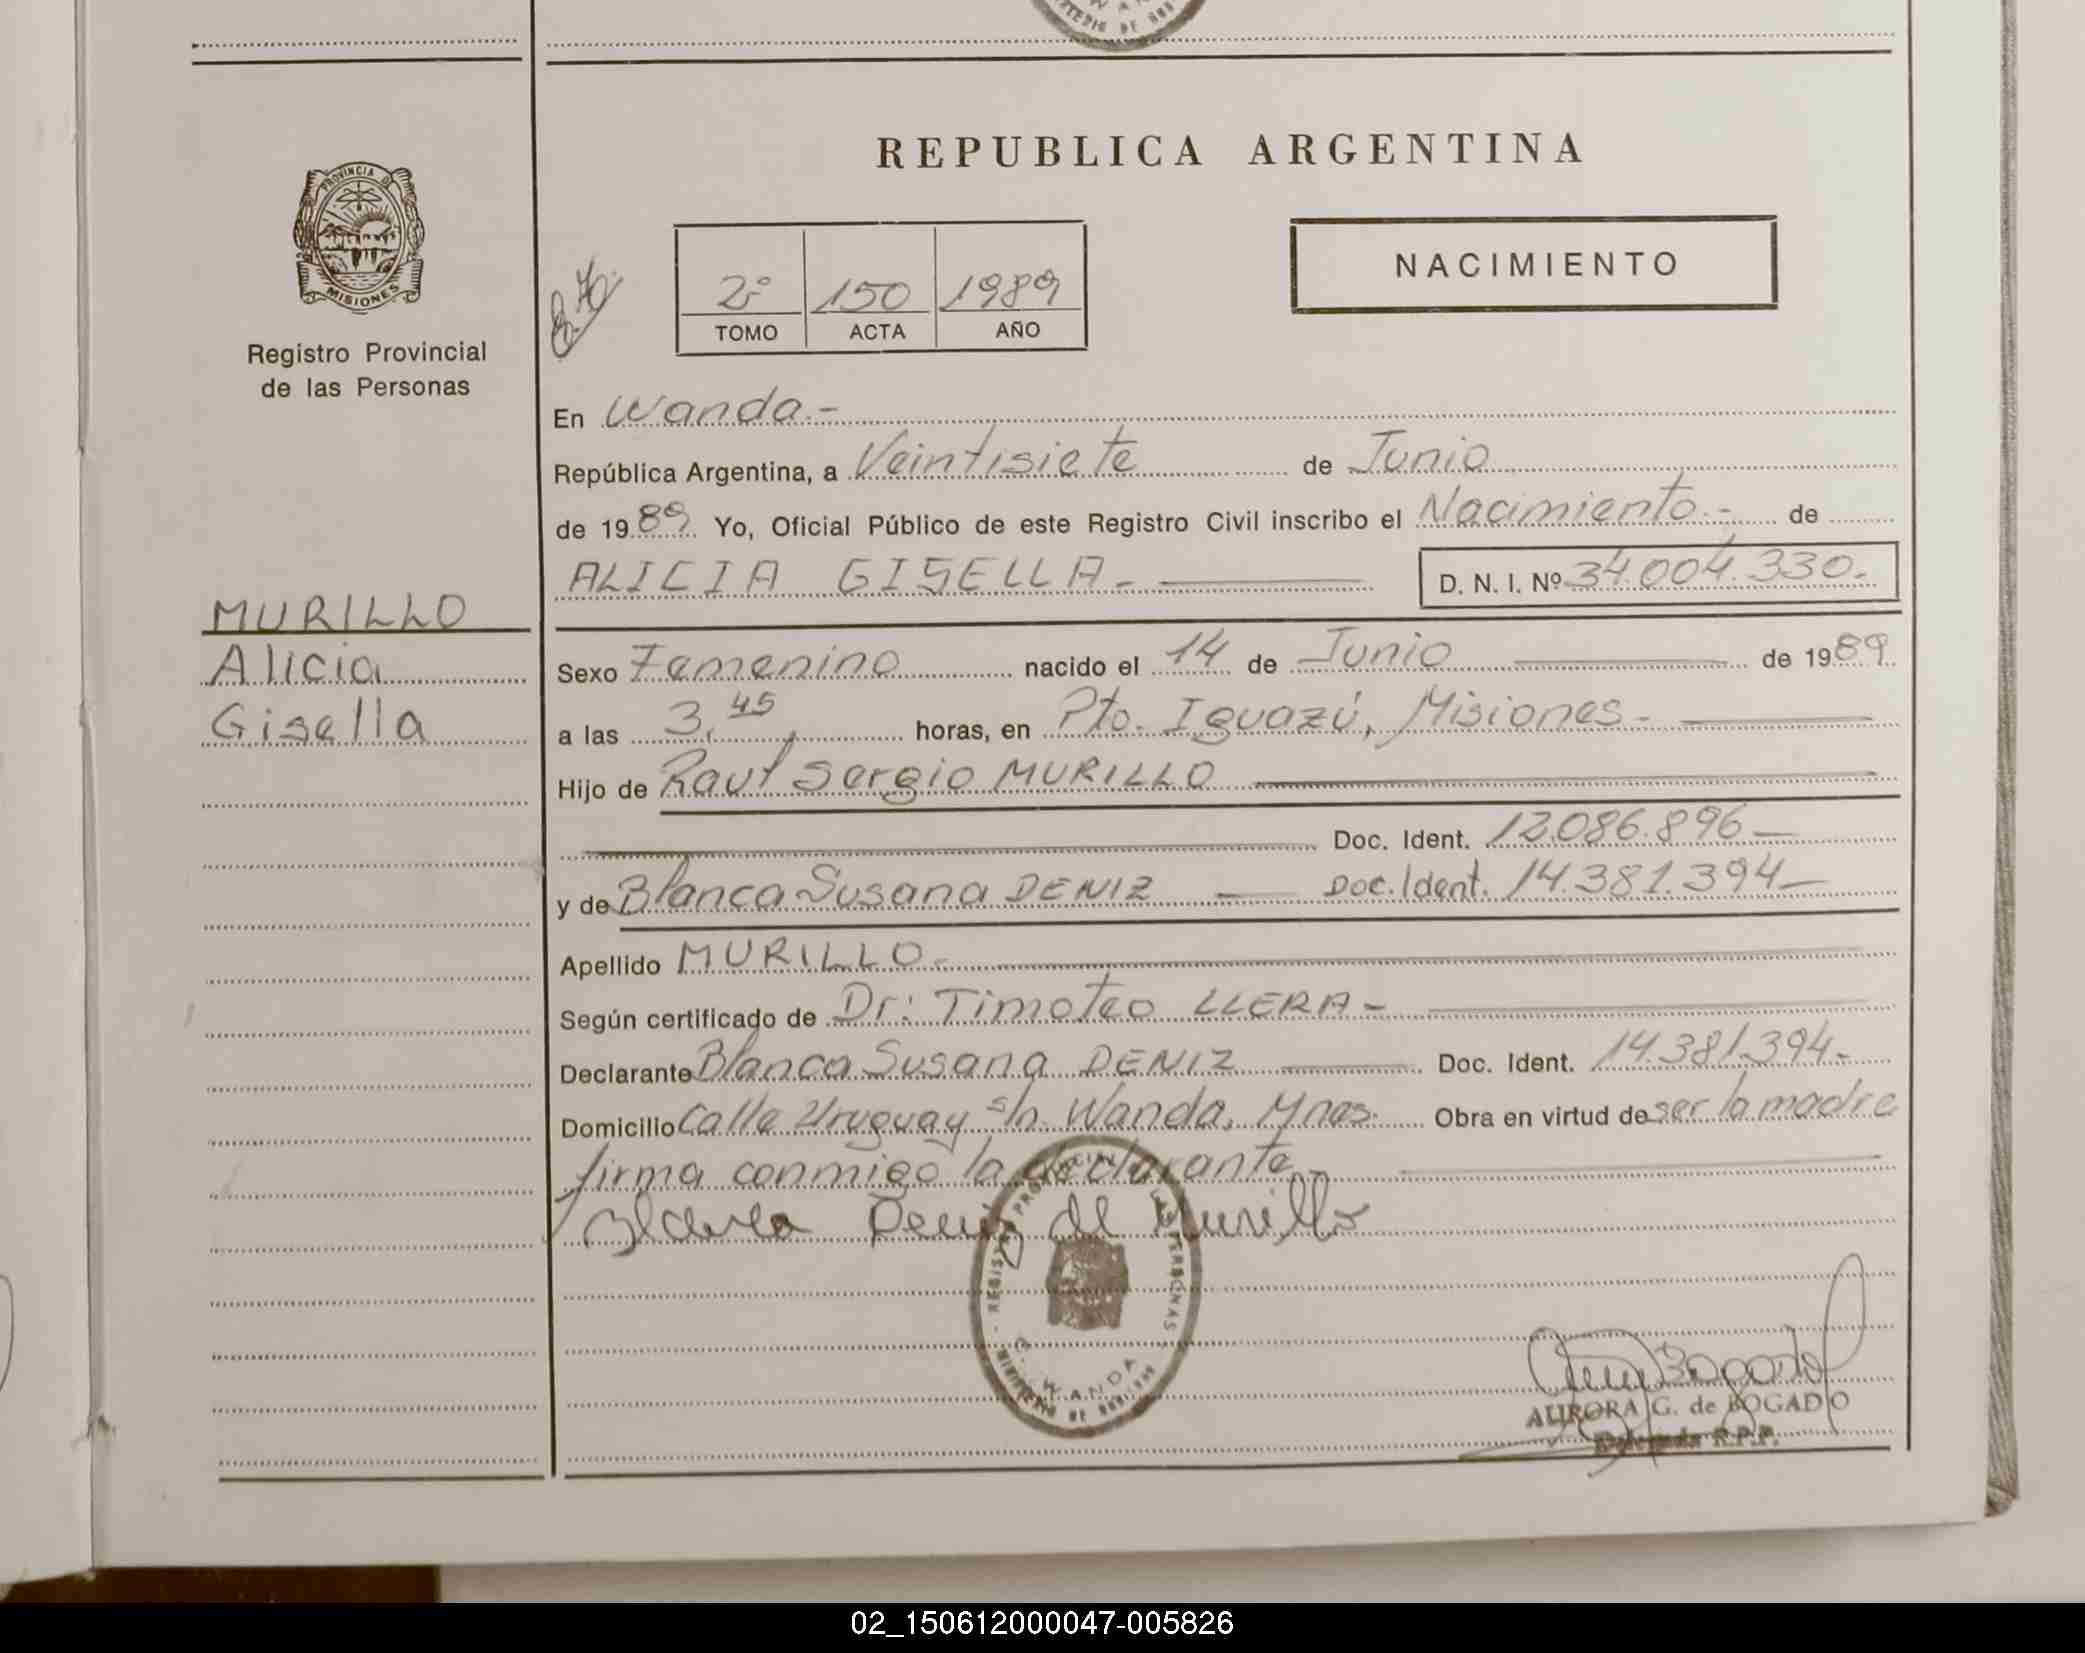 REPUBLICA ARGENTINA
PROVINCIA DE
MISIONES
Registro Provincial
de las Personas
2º 150 1989
TOMO ACTA AÑO
NACIMIENTO
En Wanda.-
República Argentina, a Veintisiete de Junio
de 1989. Yo, Oficial Público de este Registro Civil inscribo el Nacimiento.- de
ALICIA GISELLA.- D. N. I. Nº 34.004.330.-
MURILLO
Alicia
Gisella
Sexo Femenino nacido el 14 de Junio de 1989
a las 3,45, horas, en Pto. Iguazú, Misiones.-
Hijo de Raul Sergio MURILLO
Doc. Ident. 12.086.896-
y de Blanca Susana DENIZ - Doc. Ident. 14.381.394-
Apellido MURILLO.-
Según certificado de Dr: Timoteo LLERA-
Declarante Blanca Susana DENIZ Doc. Ident. 14.381.394-
Domicilio Calle Uruguay s/n. Wanda, Mnes. Obra en virtud de ser la madre
firma conmigo la declarante.-
Blanca Deniz de Murillo
WANDA
AURORA G. de BOGADO
Delegada R.P.P.
02_150612000047-005826